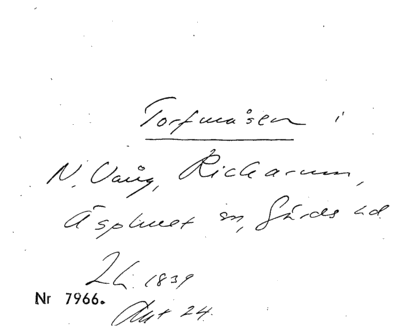 Torfmåsen i
N. Vång, Rickarum,
Äsphult sn, Gärds hd
Lh. 1839
Nr 7966.
Akt 24.